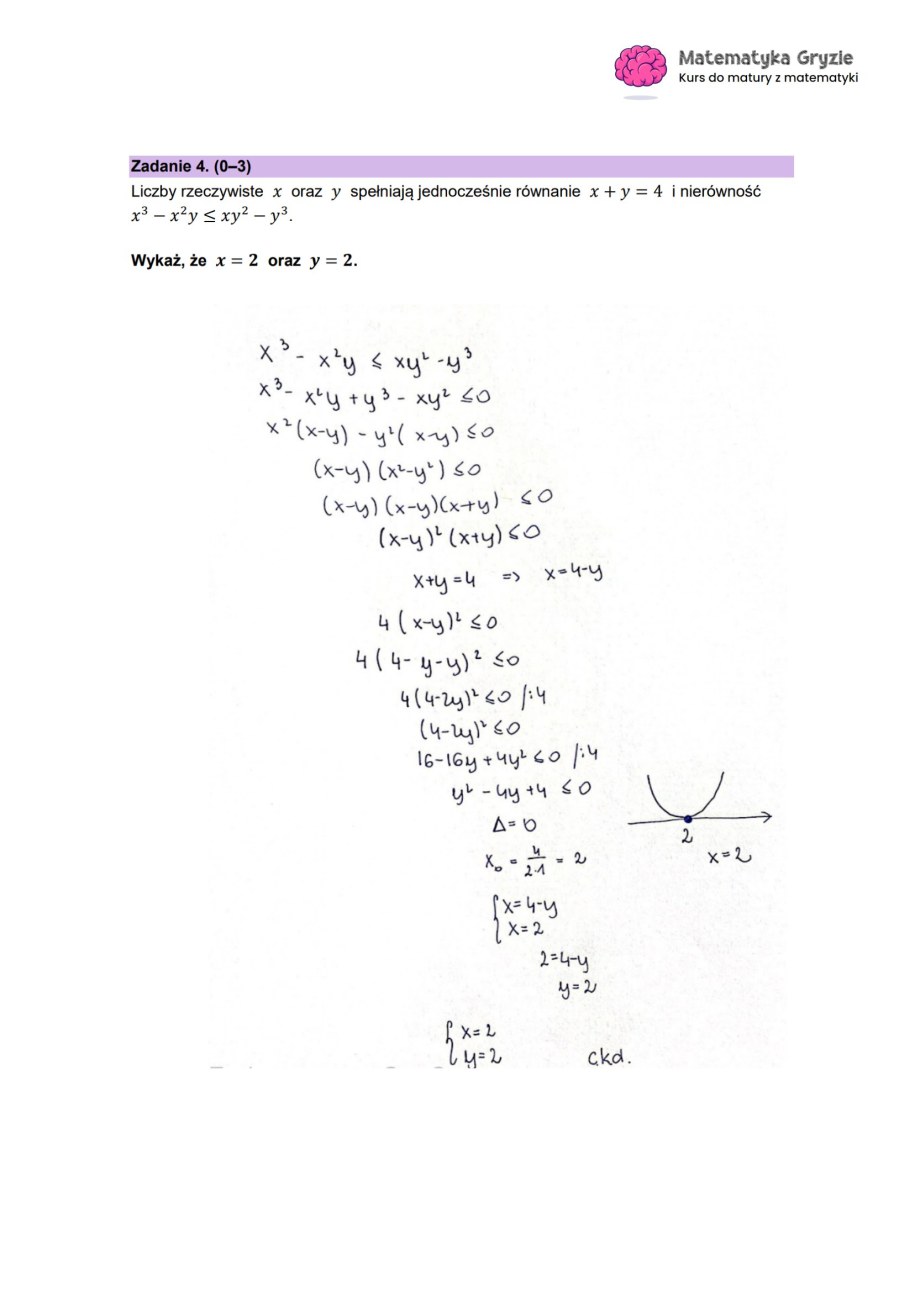 Matematyka Gryzie
Kurs do matury z matematyki
Zadanie 4. (0–3)
Liczby rzeczywiste x oraz y spełniają jednocześnie równanie x + y = 4 i nierówność
x³ − x²y ≤ xy² − y³.
Wykaż, że x = 2 oraz y = 2.
x³ - x²y ≤ xy² - y³
x³ - x²y + y³ - xy² ≤ 0
x²(x-y) - y²(x-y) ≤ 0
(x-y)(x²-y²) ≤ 0
(x-y)(x-y)(x+y) ≤ 0
(x-y)²(x+y) ≤ 0
x+y = 4 => x = 4-y
4(x-y)² ≤ 0
4(4-y-y)² ≤ 0
4(4-2y)² ≤ 0 /:4
(4-2y)² ≤ 0
16-16y+4y² ≤ 0 /:4
y² - 4y + 4 ≤ 0
Δ = 0
x₀ = 4/2·1 = 2
2
x = 2
{x = 4-y
x = 2
2 = 4-y
y = 2
{x = 2
y = 2 ckd.